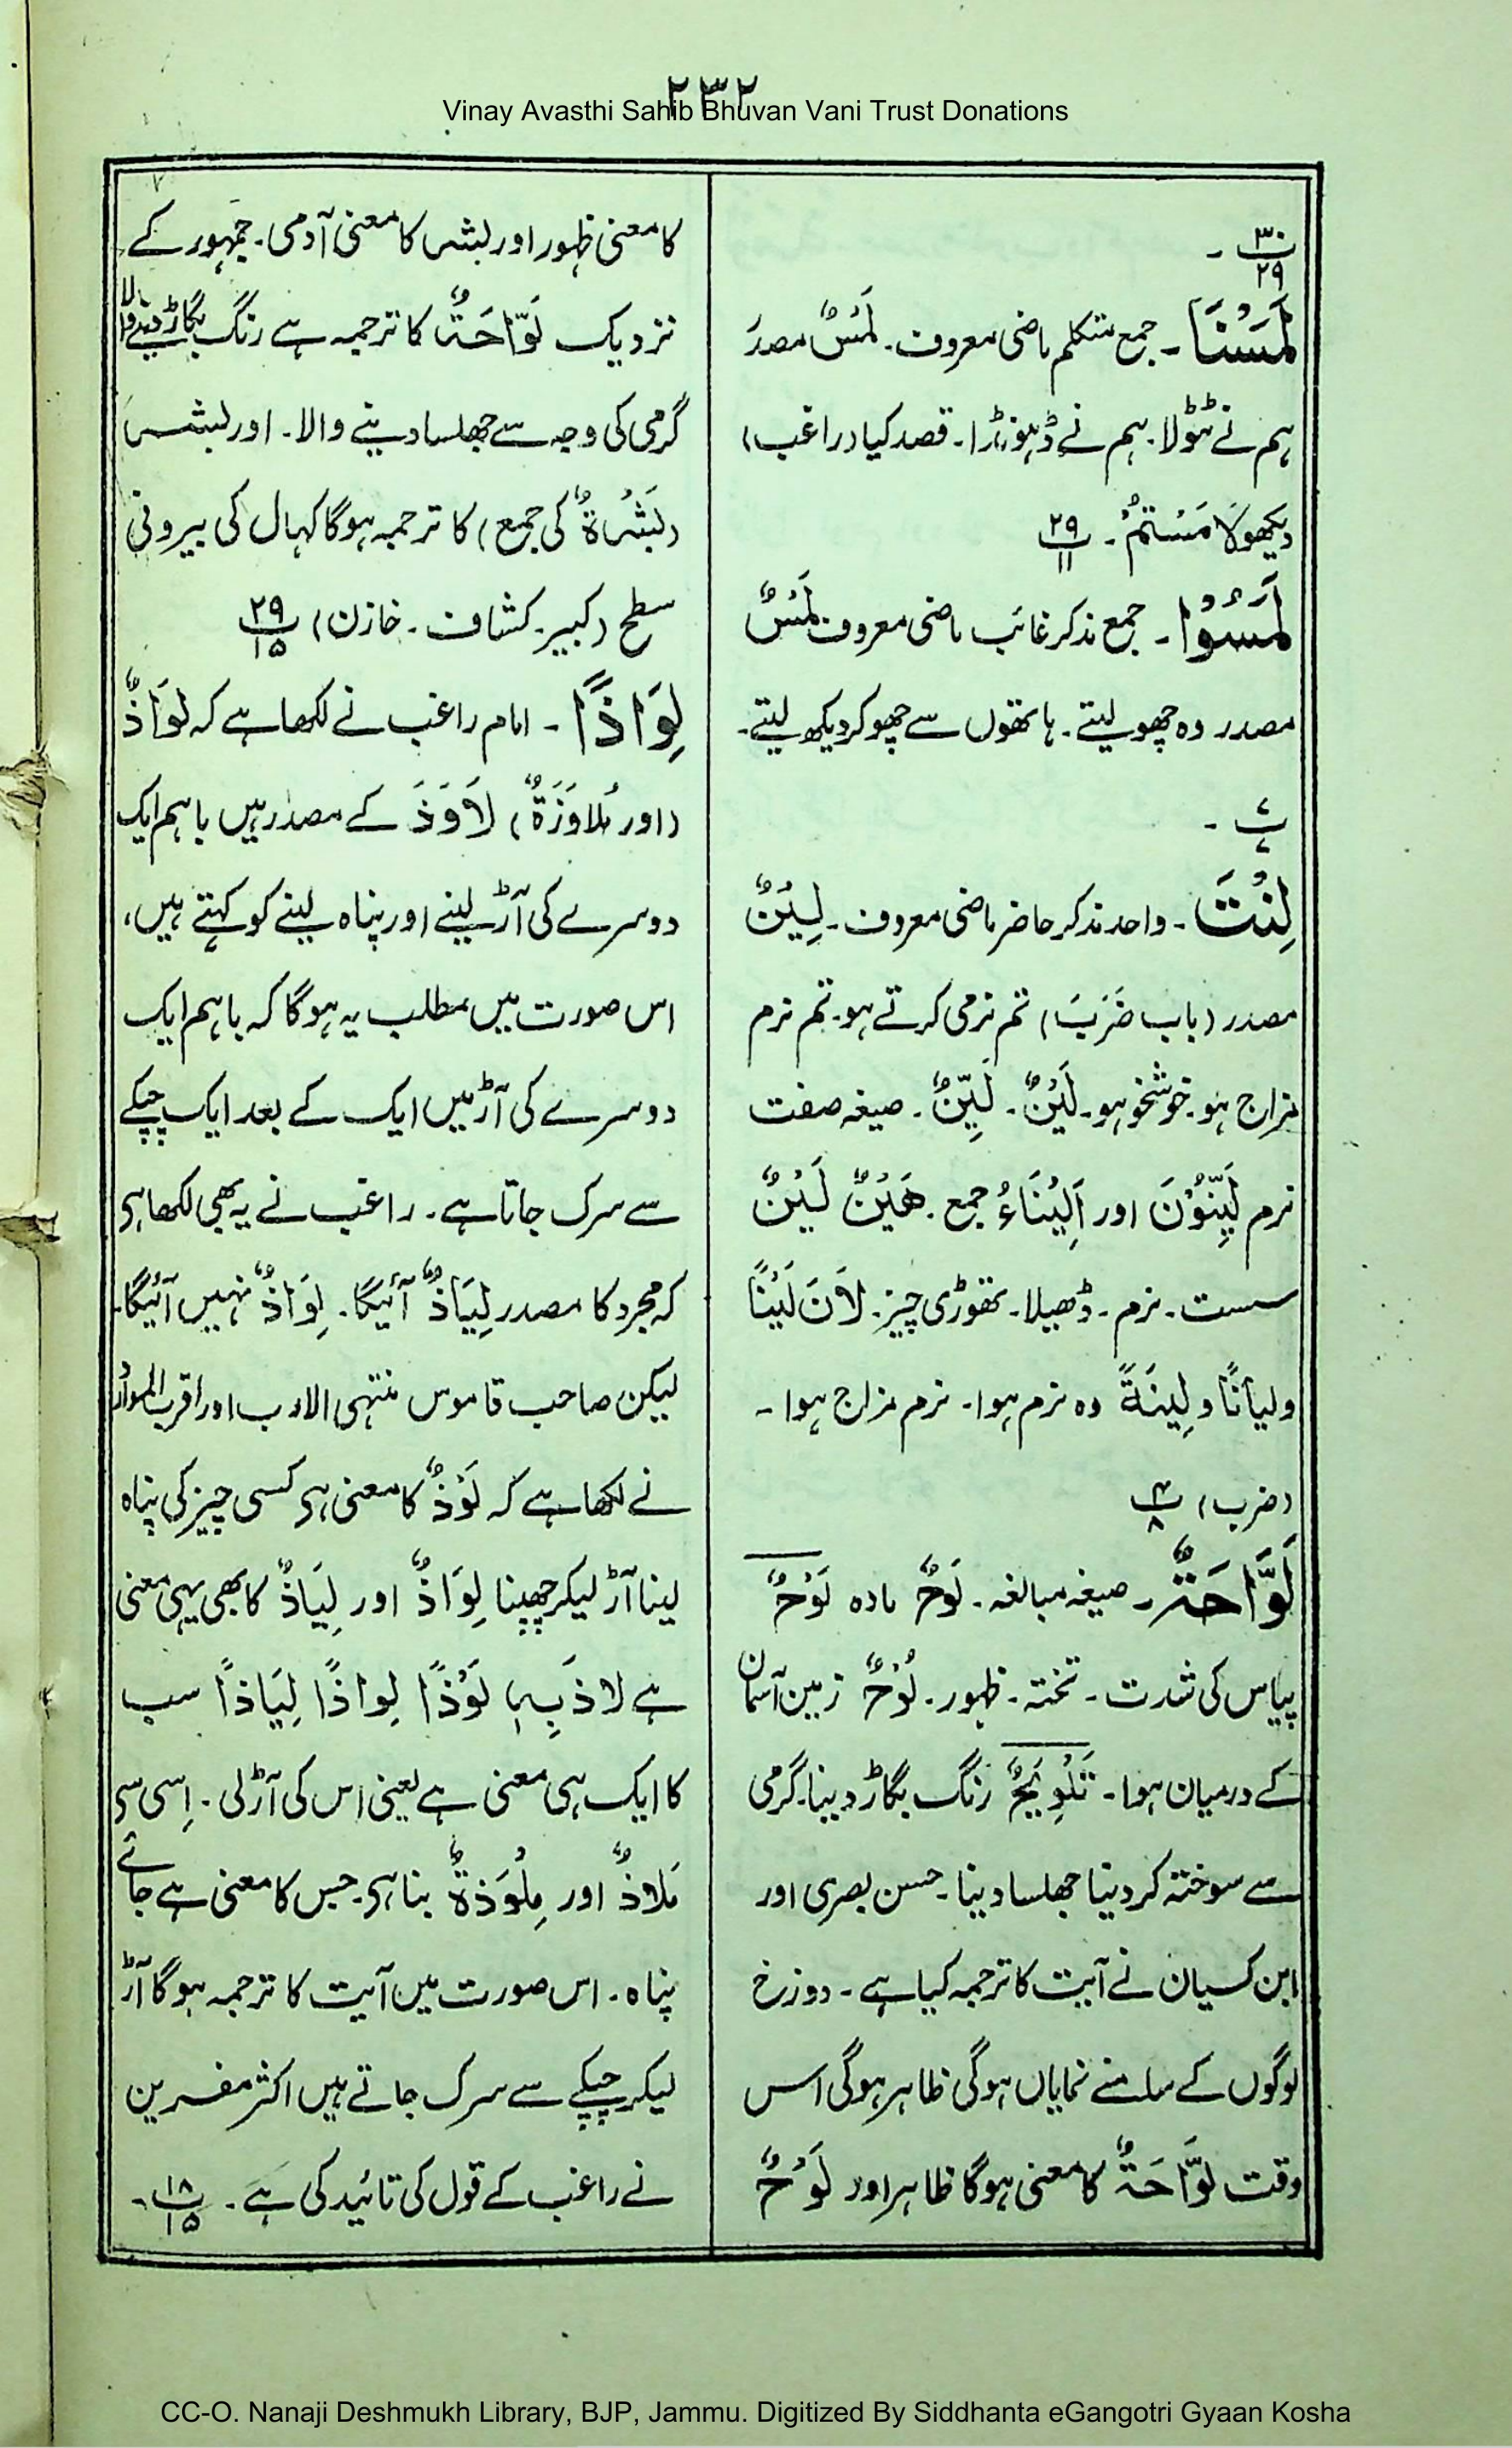 ۲۳۲
Vinay Avasthi Sahib Bhuvan Vani Trust Donations
۳۰
۲۹ ۔
لَمَسْنَا ۔ جمع متکلم ماضی معروف ۔ لَمْسٌ مصدر
ہم نے ٹٹولا ۔ ہم نے ڈہونڈا ۔ قصد کیا (راغب)
دیکھو لَامَسْتُمْ ۔ ۲۹
۱۱
لَمَسُوْا ۔ جمع مذکر غائب ماضی معروف لَمْسٌ
مصدر وہ چھو لیتے ۔ ہاتھوں سے چھو کر دیکھ لیتے ۔
۷
۷ ۔
لِنْتَ ۔ واحد مذکر حاضر ماضی معروف ۔ لِیْنٌ
مصدر (باب ضَرَبَ) تم نرمی کرتے ہو ۔ تم نرم
مزاج ہو ۔ خوشخو ہو ۔ لَیْنٌ ۔ لَیِّنٌ ۔ صیغہ صفت
نرم لَیِّنُوْنَ اور اَلِیْنَاءُ جمع ۔ ھَیْنٌ لَیْنٌ
سست ۔ نرم ۔ ڈھیلا ۔ تھوڑی چیز ۔ لَانَ لَیْنًا
ولیانًا و لِینَةً وہ نرم ہوا ۔ نرم مزاج ہوا ۔
(ضرب) ۴
۸
لَوَّاحَةٌ ۔ صیغہ مبالغہ ۔ لَوْحٌ مادہ لَوْحٌ
پیاس کی شدت ۔ تختہ ۔ ظہور ۔ لُوْحٌ زمین آسمان
کے درمیان ہوا ۔ تَلْوِیْحٌ رنگ بگاڑ دینا ۔ گرمی
سے سوختہ کر دینا جھلسا دینا ۔ حسن بصری اور
ابن کسیان نے آیت کا ترجمہ کیا ہے ۔ دوزخ
لوگوں کے سامنے نمایاں ہو گی ظاہر ہو گی اس
وقت لَوَّاحَةٌ کا معنی ہو گا ظاہر اور لَوْحٌ
کا معنی ظہور اور بشر کا معنی آدمی ۔ جمہور کے
نزدیک لَوَّاحَةٌ کا ترجمہ ہے رنگ بگاڑ دینے والا
گرمی کی وجہ سے جھلسا دینے والا ۔ اور بشر
(بَشَرَةٌ کی جمع) کا ترجمہ ہو گا کھال کی بیرونی
سطح (کبیر ۔ کشاف ۔ خازن) ۲۹
۱۵
لِوَاذًا ۔ امام راغب نے لکھا ہے کہ لِوَاذٌ
(اور مُلَاوَزَةٌ) لَاوَذَ کے مصدر ہیں باہم ایک
دوسرے کی آڑ لینے اور پناہ لینے کو کہتے ہیں،
اس صورت میں مطلب یہ ہو گا کہ باہم ایک
دوسرے کی آڑ میں ایک کے بعد ایک چپکے
سے سرک جاتا ہے ۔ راغب نے یہ بھی لکھا ہی
کہ مجرد کا مصدر لِیَاذٌ آئیگا ۔ لِوَاذٌ نہیں آئیگا ۔
لیکن صاحب قاموس منتہی الارب اور اقرب الموارد
نے لکھا ہے کہ لَوْذٌ کا معنی ہی کسی چیز کی پناہ
لینا آڑ لیکر چھپنا لِوَاذٌ اور لِیَاذٌ کا بھی یہی معنی
ہے لاذَ بِہٖ لَوْذًا لِواذًا لِیَاذًا سب
کا ایک ہی معنی ہے یعنی اس کی آڑ لی ۔ اِسی سی
مَلَاذٌ اور مِلْوَذَةٌ بنا ہی ۔ جس کا معنی ہے جائے
پناہ ۔ اس صورت میں آیت کا ترجمہ ہو گا آڑ
لیکر چپکے سے سرک جاتے ہیں اکثر مفسرین
نے راغب کے قول کی تائید کی ہے ۔ ۱۸
۱۵
CC-O. Nanaji Deshmukh Library, BJP, Jammu. Digitized By Siddhanta eGangotri Gyaan Kosha